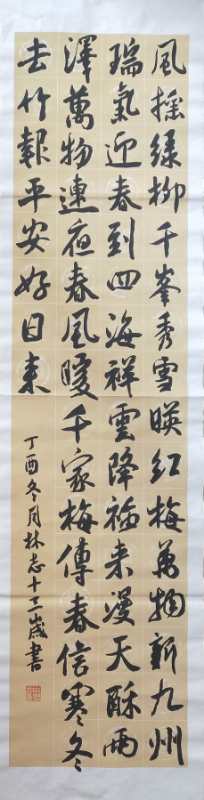 風摇绿柳千峯秀雪暎红梅萬物新九州
瑞氣迎春到四海祥雲降福来漫天酥雨
澤萬物連夜春風暖千家梅傳春信寒冬
去竹報平安好日来
丁酉冬月林志十三歲書